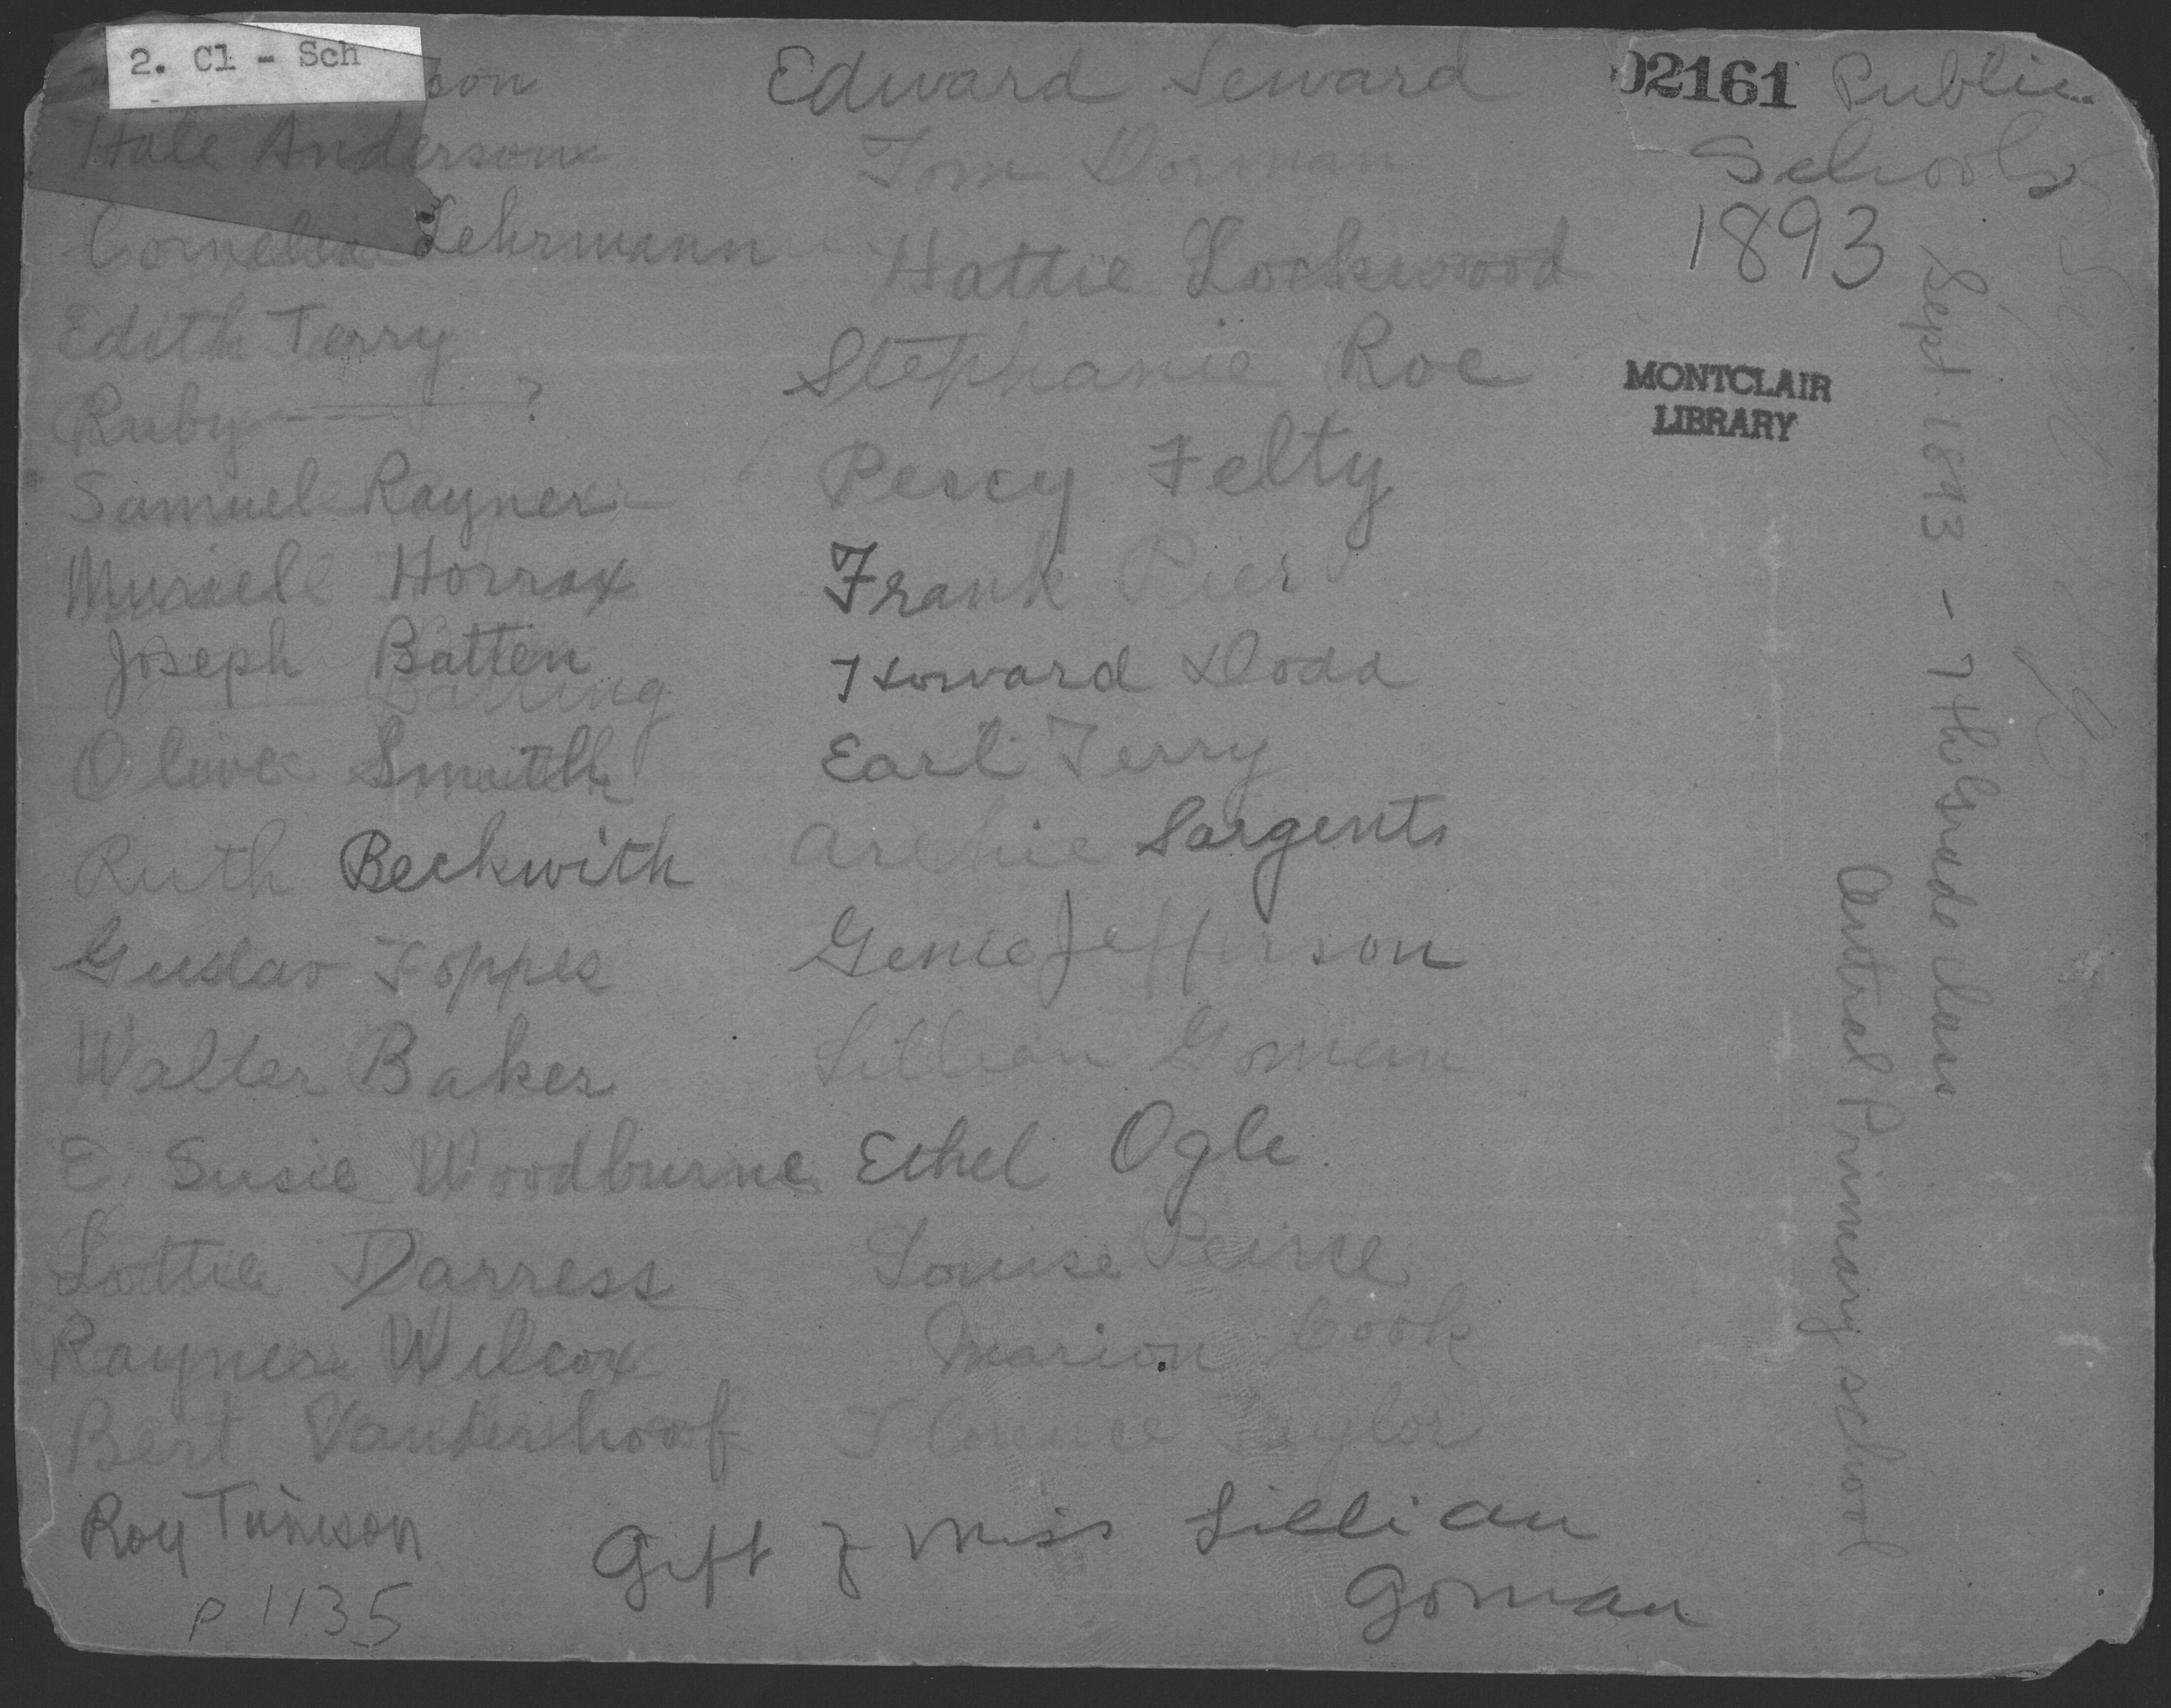 2. Cl - Sch
son
Hale Anderson
Cornelia Lehrmann
Edith Terry
Ruby ——— ?
Samuel Rayner
Muriel Horrax
Joseph Batten
Olive Smith
Ruth Beckwith
Gustav Toppes
Walter Baker
E. Susie Woodburne
Lottie Darress
Rayner Wilcox
Bert Vanderhoof
Roy Tunison
p 1135
Edward Seward
Tom Dorman
Hattie Lockwood
Stephanie Roe
Percy Felty
Frank Pier
Howard Dodd
Earl Terry
Archie Sargents
Genie Jefferson
Lillian Goman
Ethel Ogle
Louise Peirce
Marion Cook
Florence Taylor
Gift of Miss Lillian
Goman
02161 Public
Schools
1893
MONTCLAIR
LIBRARY
Sept 1893 - 7th Grade class
Central Primary school